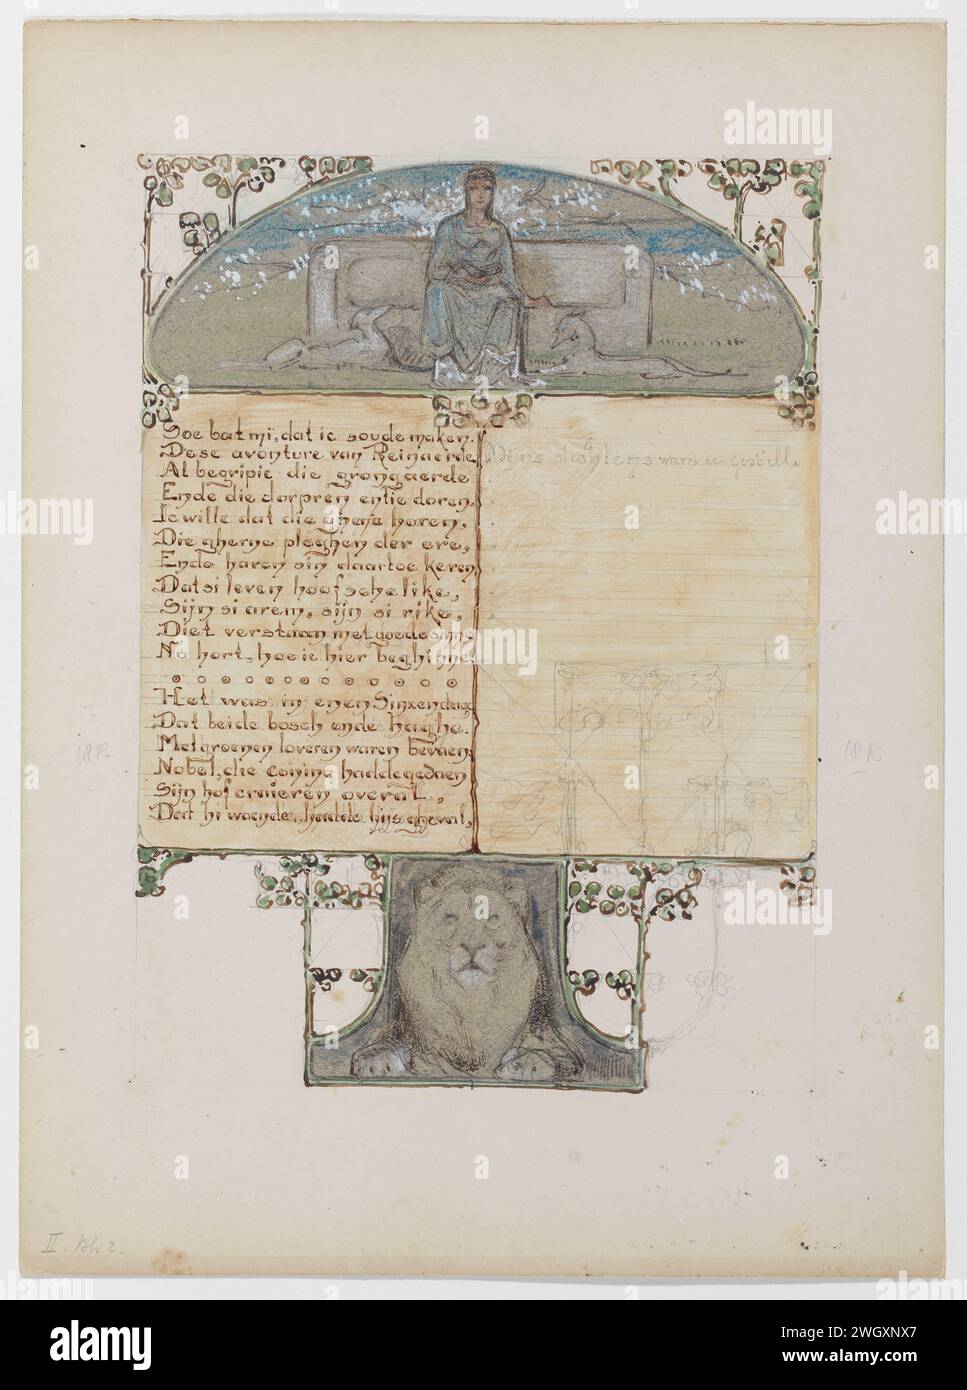 Soe bat mi, dat ic soude maken.
Dese avonture van Reinaerde
Al begripic die grongaerde
Ende die dorpren entie doren,
Ic wille dat die ghene horen,
Die gherne pleghen der ere,
Ende haren sin daartoe keren
Dat si leven hoofschelike,
Sijn si arem, sijn si rike,
Diet verstaan met goede sinne
Nu hort, hoe ic hier beghinne.
Het was in enen Sinxendage
Dat beide bosch ende haghe.
Met groenen loveren waren bevaen.
Nobel, die coninc hadde gedaen
Sijn hof craieren overal,
Dat hi waende, hadde hijs gheval,
18 R.
18 R
II. Bl. 2.
alamy
Image ID: 2WGXNX7
www.alamy.com